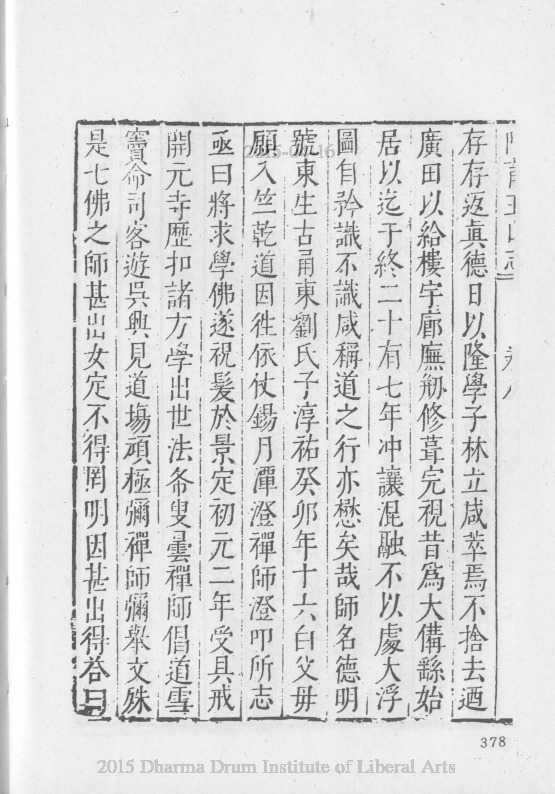 存存返眞德日以隆學子林立咸萃焉不捨去迺
廣田以給樓宇廊廡剏修葺完視昔爲大備繇始
居以迄于終二十有七年冲讓混融不以處大浮
圖自矜識不識咸稱道之行亦懋矣哉師名德明
號東生古甬東劉氏子淳祐癸卯年十六白父毋
願入竺乾道因徃依仗錫月潭澄禪師澄叩所志
亟曰將求學佛遂祝髪於景定初元二年受具戒
開元寺歷扣諸方學出世法希叟曇禪師倡道雪
竇命司客遊吳興見道塲頑極彌禪師彌舉文殊
是七佛之師甚出女定不得罔明因甚出得答曰
378
2015 Dharma Drum Institute of Liberal Arts